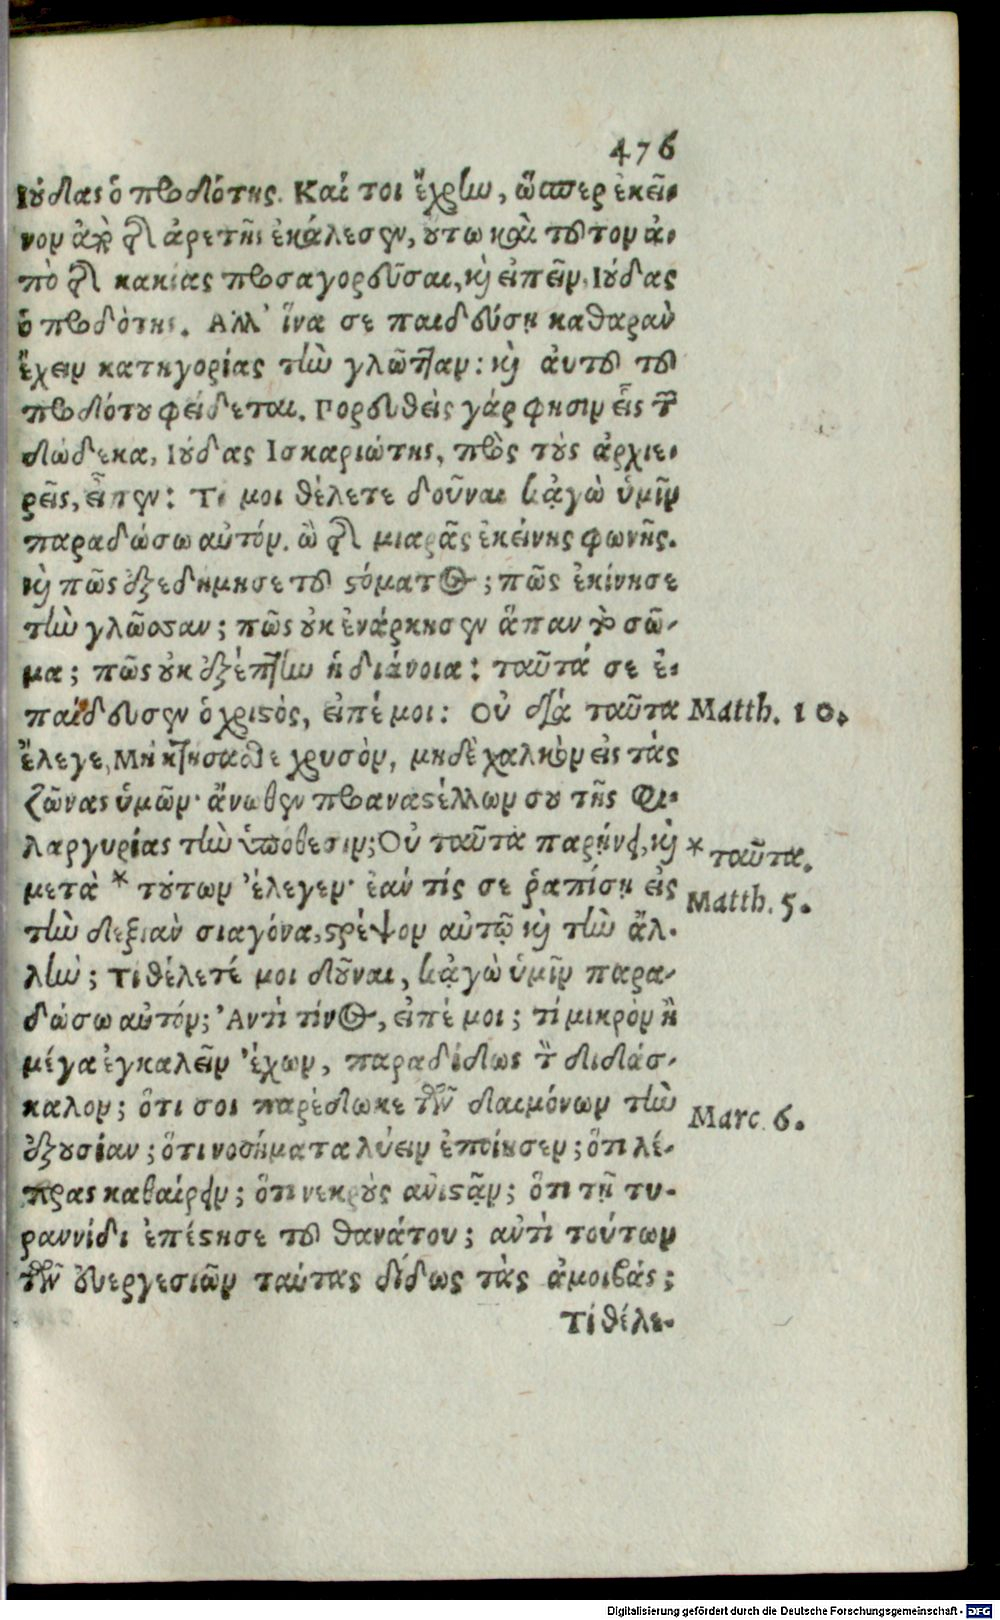 476
Ιούδας ὁ προδότης. Καί τοι ἔχρην, ὥσπερ ἐκεῖ-
νον ἀπὸ τῆς ἀρετῆς ἐκάλεσεν, οὕτω καὶ τοῦτον ἀ-
πὸ τῆς κακίας προσαγορεῦσαι, καὶ εἰπεῖν, Ιούδας
ὁ προδότης. Αλλ' ἵνα σε παιδεύσῃ καθαρὰν
ἔχειν κατηγορίας τὴν γλῶτταν: καὶ αὐτοῦ τοῦ
προδότου φείδεται. Πορευθεὶς γάρ φησιν εἷς τῶν
δώδεκα, Ιούδας Ισκαριώτης, πρὸς τοὺς ἀρχιε-
ρεῖς, εἶπεν: Τί μοι θέλετε δοῦναι κᾀγὼ ὑμῖν
παραδώσω αὐτόν. ὢ τῆς μιαρᾶς ἐκείνης φωνῆς.
καὶ πῶς ἐξεδήμησε τοῦ στόματος; πῶς ἐκίνησε
τὴν γλῶσσαν; πῶς οὐκ ἐνάρκησεν ἅπαν τὸ σῶ-
μα; πῶς οὐκ ἐξέπτην ἡ διάνοια: ταῦτά σε ἐ-
παίδευσεν ὁ χριστὸς, εἰπέ μοι: Οὐ διὰ ταῦτα
Matth. 10.
ἔλεγε, Μὴ κτήσασθε χρυσὸν, μηδὲ χαλκὸν εἰς τὰς
ζῶνας ὑμῶν· ἄνωθεν προαναστέλλων σου τῆς φι-
λαργυρίας τὴν ὑπόθεσιν; Οὐ ταῦτα παρῄνει, καὶ
* ταῦτα.
μετὰ * τούτων ἔλεγεν· ἐάν τίς σε ῥαπίσῃ εἰς
Matth. 5.
τὴν δεξιὰν σιαγόνα, στρέψον αὐτῷ καὶ τὴν ἄλ-
λην; Τί θέλετέ μοι δοῦναι, κᾀγὼ ὑμῖν παρα-
δώσω αὐτόν; Ἀντὶ τίνος, εἰπέ μοι; τί μικρὸν ἢ
μέγα ἐγκαλεῖν ἔχων, παραδίδως τὸν διδάσ-
καλον; ὅτι σοι παρέδωκε τῶν δαιμόνων τὴν
Marc. 6.
ἐξουσίαν; ὅτι νοσήματα λύειν ἐποίησεν; ὅτι λέ-
πρας καθαίρειν; ὅτι νεκροὺς ἀνιστᾷν; ὅτι τῇ τυ-
ραννίδι ἐπέστησε τοῦ θανάτου; ἀντὶ τούτων
τῶν εὐεργεσιῶν ταύτας δίδως τὰς ἀμοιβάς;
Τί θέλε-
Digitalisierung gefördert durch die Deutsche Forschungsgemeinschaft - DFG